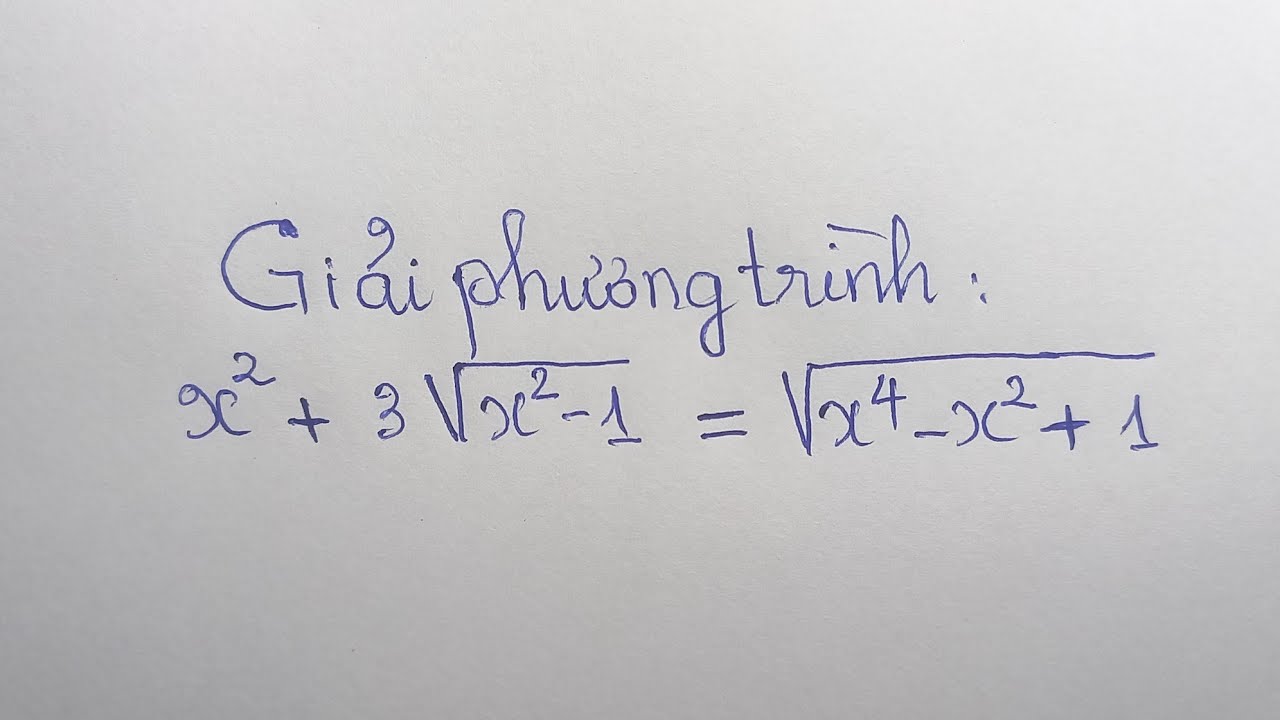 Giải phương trình:
x² + 3√(x² - 1) = √(x⁴ - x² + 1)